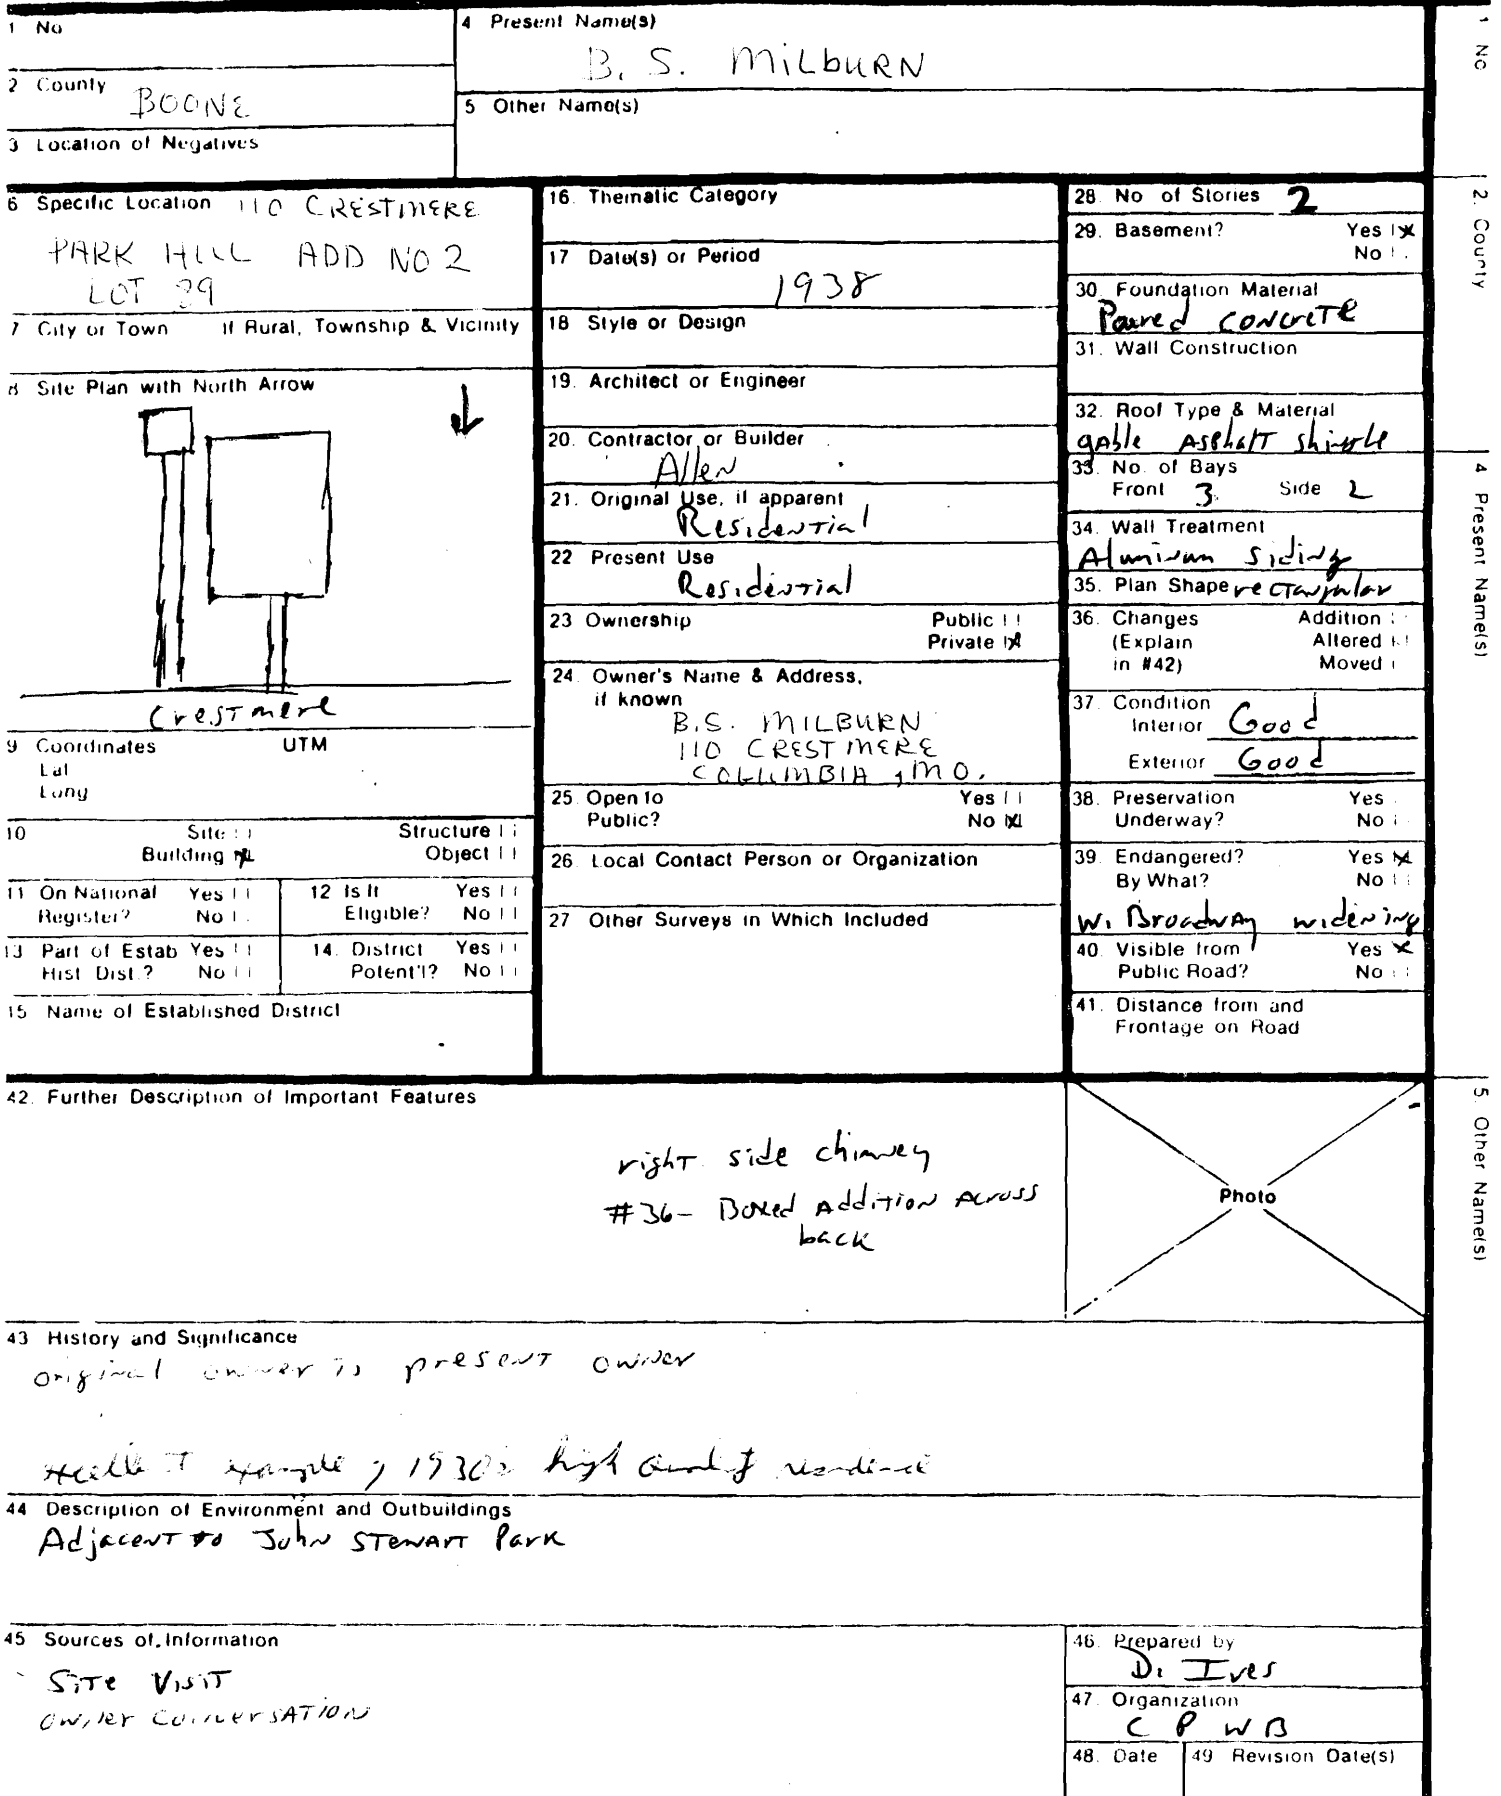 1 No
4 Present Name(s)
B. S. MILBURN
2 County
BOONE
5 Other Name(s)
3 Location of Negatives
6 Specific Location 110 CRESTMERE
PARK HILL ADD NO 2
LOT 39
7 City or Town If Rural, Township & Vicinity
8 Site Plan with North Arrow
Crestmere
9 Coordinates UTM
Lat
Long
10 Site Structure
Building X Object
11 On National Register? Yes No
12 Is It Eligible? Yes No
13 Part of Estab Hist Dist.? Yes No
14. District Potent'l? Yes No
15 Name of Established District
16. Thematic Category
17 Date(s) or Period
1938
18 Style or Design
19. Architect or Engineer
20. Contractor or Builder
Allen
21. Original Use, if apparent
Residential
22 Present Use
Residential
23 Ownership Public
Private X
24. Owner's Name & Address,
if known
B.S. MILBURN
110 CRESTMERE
COLUMBIA, MO.
25. Open to Yes
Public? No X
26. Local Contact Person or Organization
27 Other Surveys in Which Included
28. No of Stories 2
29. Basement? Yes X
No
30. Foundation Material
Poured concrete
31. Wall Construction
32. Roof Type & Material
gable Asphalt shingle
33. No. of Bays
Front 3 Side 2
34. Wall Treatment
Aluminum siding
35. Plan Shape rectangular
36. Changes Addition
(Explain Altered
in #42) Moved
37. Condition
Interior Good
Exterior Good
38. Preservation Yes
Underway? No
39. Endangered? Yes X
By What? No
W. Broadway widening
40. Visible from Yes X
Public Road? No
41. Distance from and
Frontage on Road
42. Further Description of Important Features
right side chimney
#36- Boxed Addition Across
back
Photo
43 History and Significance
original owner is present owner
example 1930s high quality residence
44 Description of Environment and Outbuildings
Adjacent to John Stewart Park
45 Sources of Information
Site Visit
owner conversation
46. Prepared by
D. Ives
47. Organization
C P W B
48. Date
49 Revision Date(s)
1 No
2. County
4 Present Name(s)
5. Other Name(s)